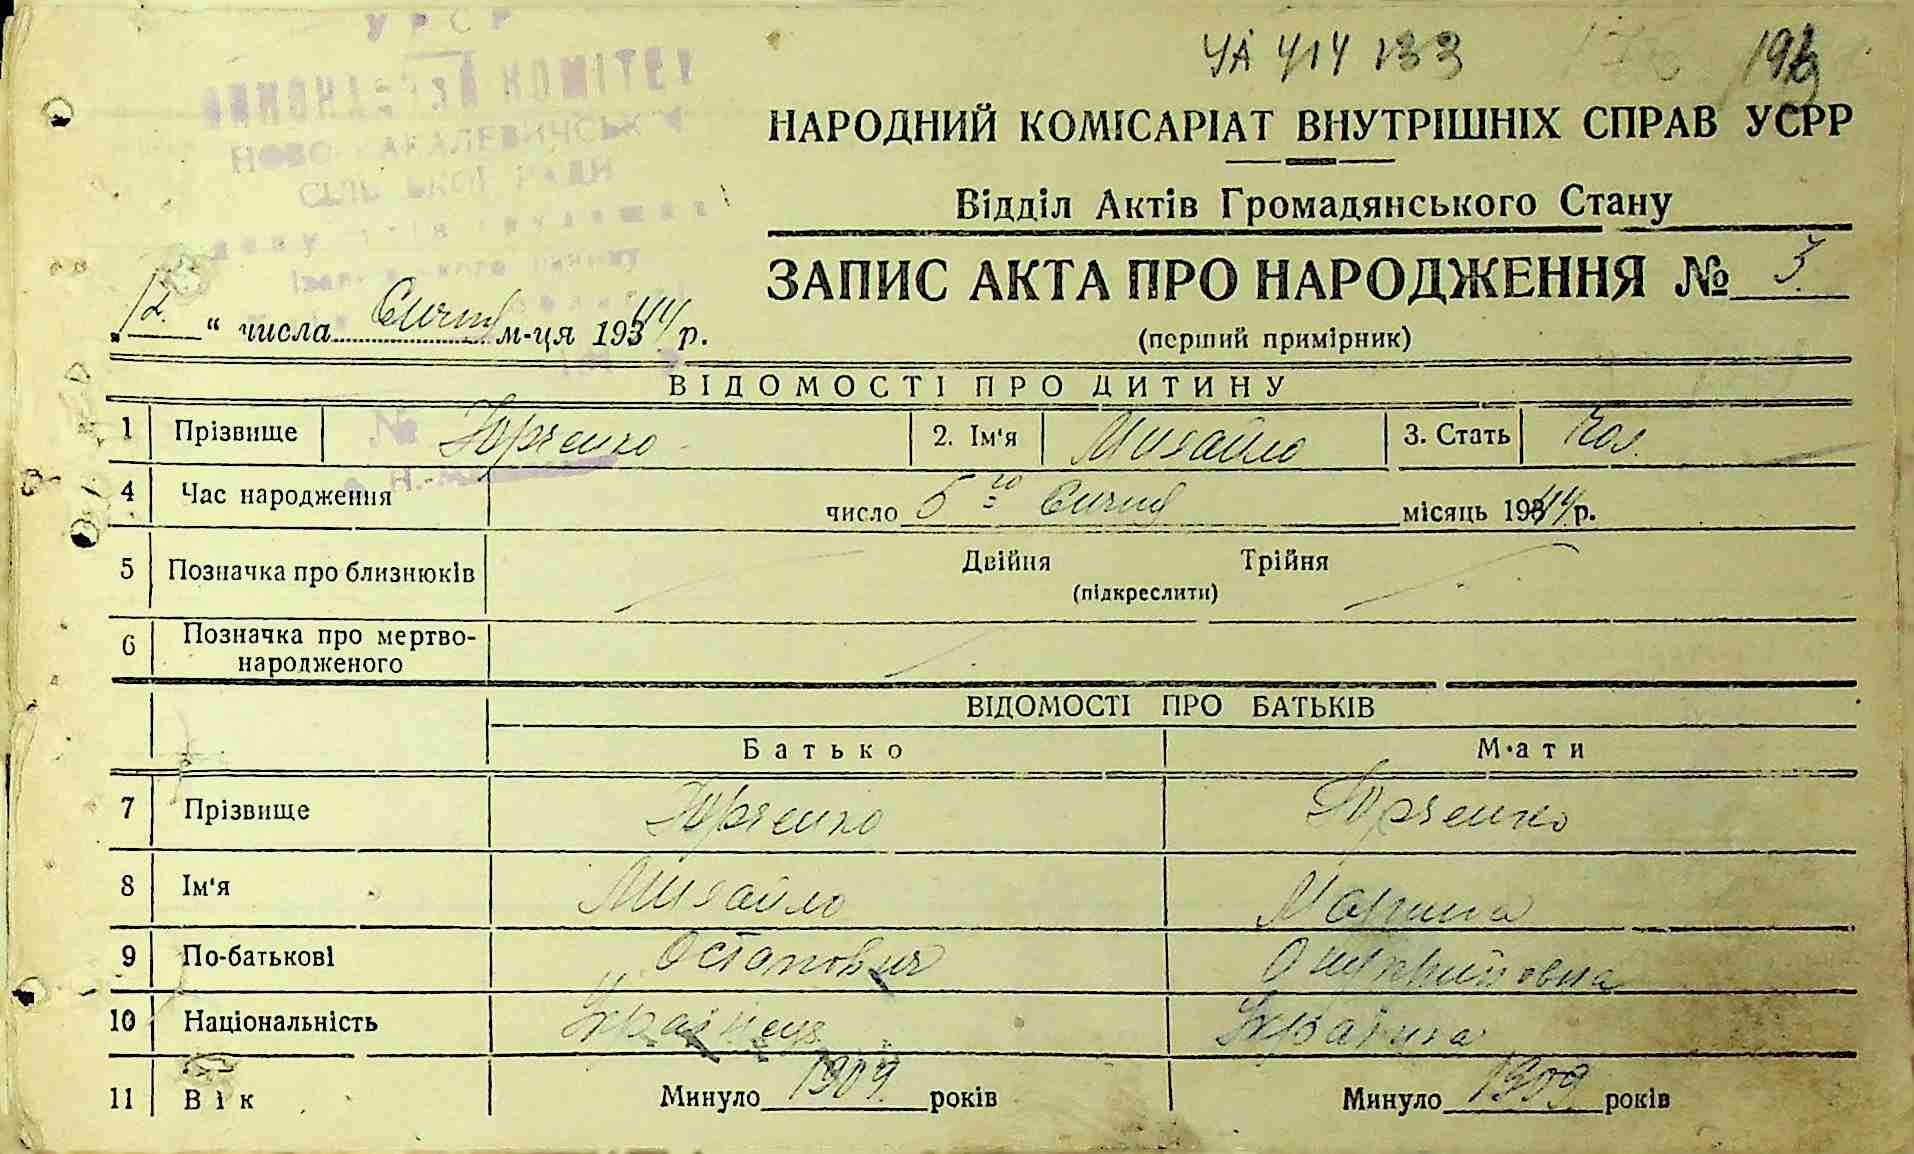 УРСР
КОМІТЕТ
СІЛЬСЬКОЇ РАДИ
УА 414 133
НАРОДНИЙ КОМІСАРІАТ ВНУТРІШНІХ СПРАВ УСРР
Відділ Актів Громадянського Стану
ЗАПИС АКТА ПРО НАРОДЖЕННЯ № 3.
(перший примірник)
„12.“ числа Січня м-ця 1944 р.
ВІДОМОСТІ ПРО ДИТИНУ
1 Прізвище Юрченко 2. Ім'я Михайло 3. Стать Чол.
4 Час народження число 5го Січня місяць 1944 р.
5 Позначка про близнюків Двійня Трійня
(підкреслити)
6 Позначка про мертво-
народженого
ВІДОМОСТІ ПРО БАТЬКІВ
Батько Мати
7 Прізвище Юрченко Юрченко
8 Ім'я Михайло Марина
9 По-батькові Остапович
10 Національність Українець Українка
11 Вік Минуло 1909 років Минуло 1909 років